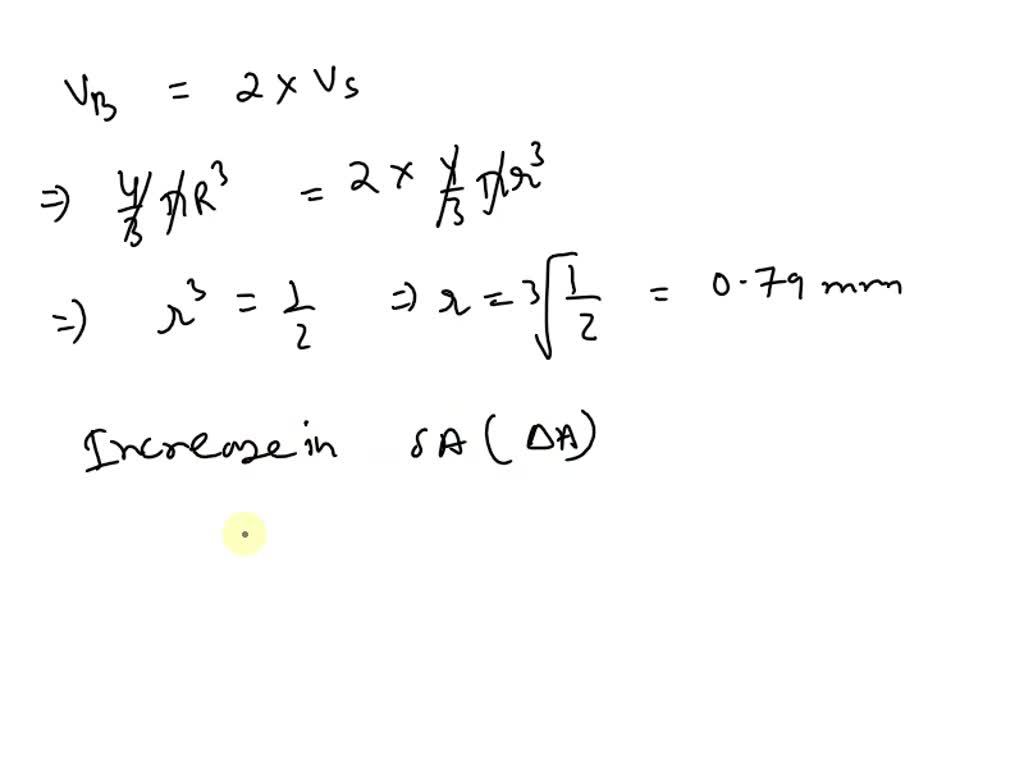 V_B = 2 × V_S
⇒ 4/3 πR³ = 2 × 4/3 πr³
⇒ r³ = 1/2 ⇒ r = ³√(1/2) = 0.79 mm
Increase in SA (ΔA)